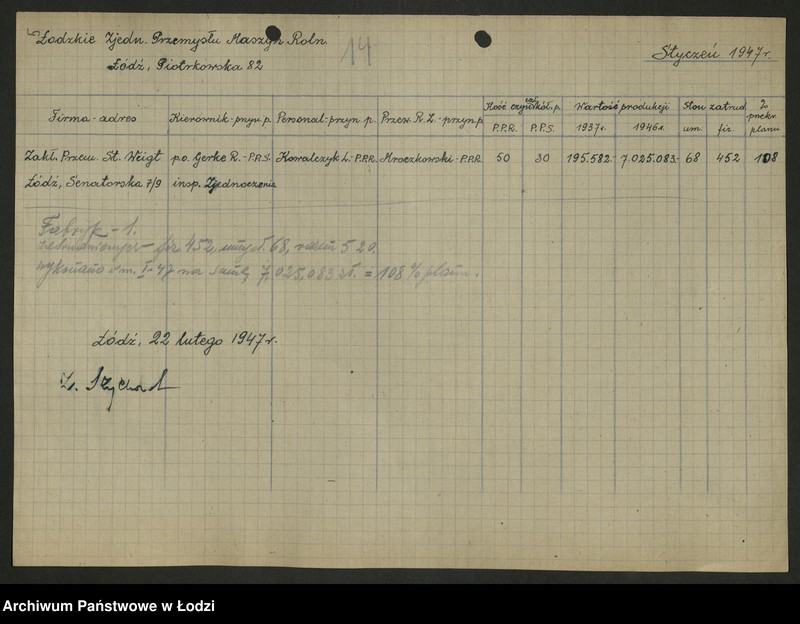 Łodzkie Zjedn. Przemysłu Maszyn Roln.
Łódź, Piotrkowska 82
14
Styczeń 1947r.
Firma - adres Kierownik - przyn. p. Personal - przyn. p. Przew. R. Z. - przyn. p. Ilość człon. kół. p. Wartość produkcji Stan zatrud. % przekr. planu
P.P.R. P.P.S. 1937r. 1946r. um. fiz.
Zakł. Przem. St. Weigt p.o. Gerke R. - P.P.S. Kowalczyk L. - P.P.R. Mroczkowski - P.P.R. 50 30 195.582.- 7.025.083.- 68 452 108
Łódź, Senatorska 7/9 insp. Zjednoczenia
Fabryk - 1.
zatrudnionych - fiz 452, umysł. 68, razem 520.
wykonano w m. I-47 na sumę 7,025.083 zł. = 108% plan.
Łódź, 22 lutego 1947r.
Archiwum Państwowe w Łodzi